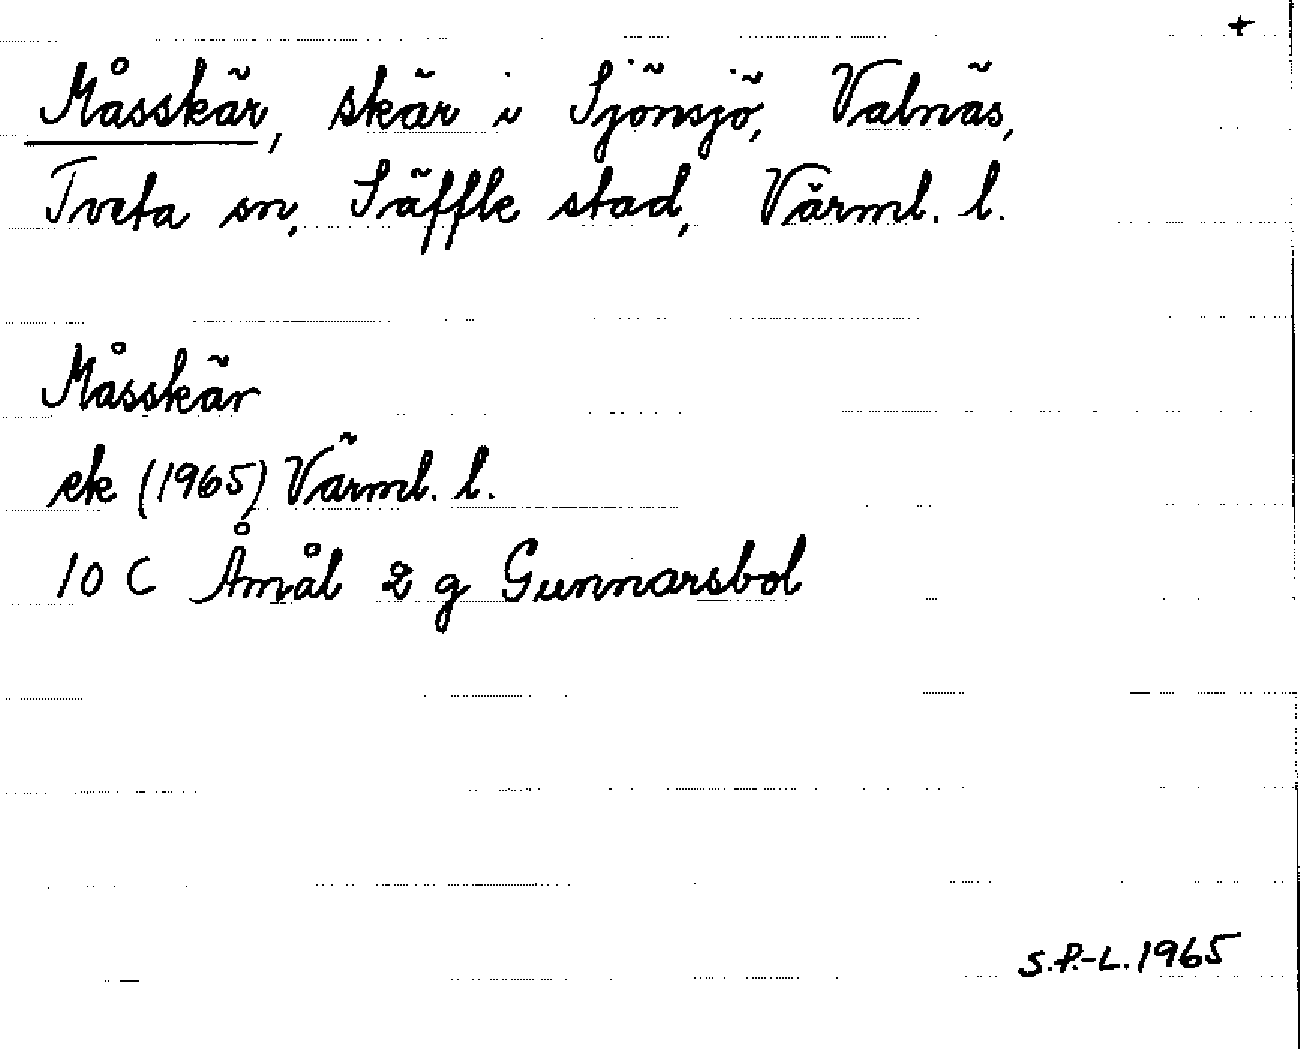 +
Måsskär, skär i Sjönsjö, Valnäs,
Tveta sn, Säffle stad, Värml. l.
Måsskär
ek (1965) Värml. l.
10 C Åmål 2 g Gunnarsbol
S.P.-L. 1965